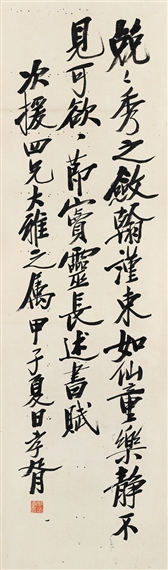 兢〻秀之斂翰謹束如仙童樂靜不
見可欲節竇靈長述書賦
次援四兄大雅之屬甲子夏日孝胥